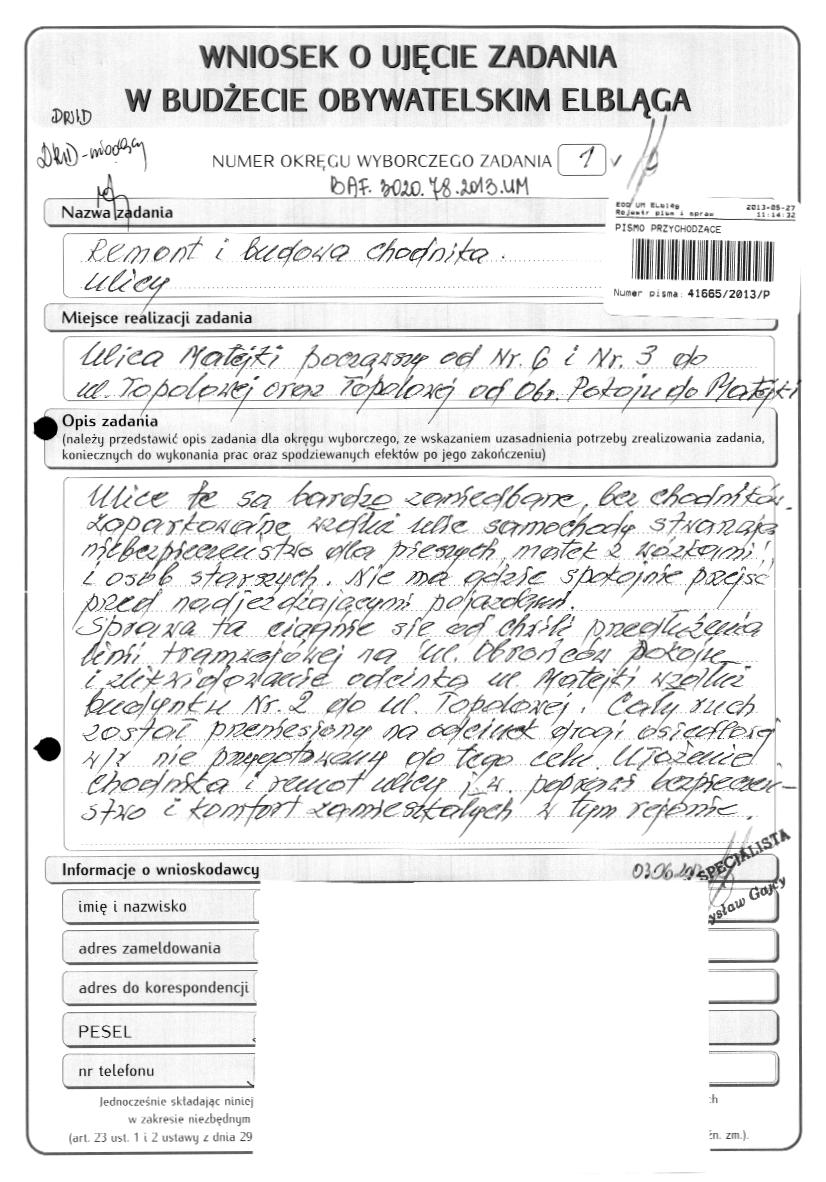 WNIOSEK O UJĘCIE ZADANIA
W BUDŻECIE OBYWATELSKIM ELBLĄGA
DRID
NUMER OKRĘGU WYBORCZEGO ZADANIA 1
BAF. 3020.78.2013.UM
EOD UM Elbląg 2013-05-27
Rejestr pism i spraw 11:14:32
PISMO PRZYCHODZĄCE
Numer pisma: 41665/2013/P
Nazwa zadania
Remont i budowa chodnika.
ulicy
Miejsce realizacji zadania
Ulica Matejki począwszy od Nr. 6 i Nr. 3 do
ul. Topolowej oraz Topolowej od Obr. Pokoju do Matejki
Opis zadania
(należy przedstawić opis zadania dla okręgu wyborczego, ze wskazaniem uzasadnienia potrzeby zrealizowania zadania,
koniecznych do wykonania prac oraz spodziewanych efektów po jego zakończeniu)
Ulice te są bardzo zaniedbane, bez chodników.
Zaparkowane wzdłuż ulic samochody stwarzają
niebezpieczeństwo dla pieszych, matek z wózkami
i osób starszych. Nie ma gdzie spokojnie przejść
przed nadjeżdżającymi pojazdami.
Sprawa ta ciągnie się od chwili przedłużenia
linii tramwajowej na ul. Obrońców pokoju
i zlikwidowanie odcinka ul. Matejki wzdłuż
budynku Nr. 2 do ul. Topolowej. Cały ruch
został przeniesiony na odcinek drogi osiedlowej
w/w nie przygotowany do tego celu. Ułożenie
chodnika i remot ulicy j.w. poprawi bezpieczeń-
stwo i komfort zamieszkałych w tym rejonie.
Informacje o wnioskodawcy
03.06
SPECJALISTA
ysław Gajcy
imię i nazwisko
adres zameldowania
adres do korespondencji
PESEL
nr telefonu
Jednocześnie składając niniej ch
w zakresie niezbędnym
(art. 23 ust. 1 i 2 ustawy z dnia 29 źn. zm.).